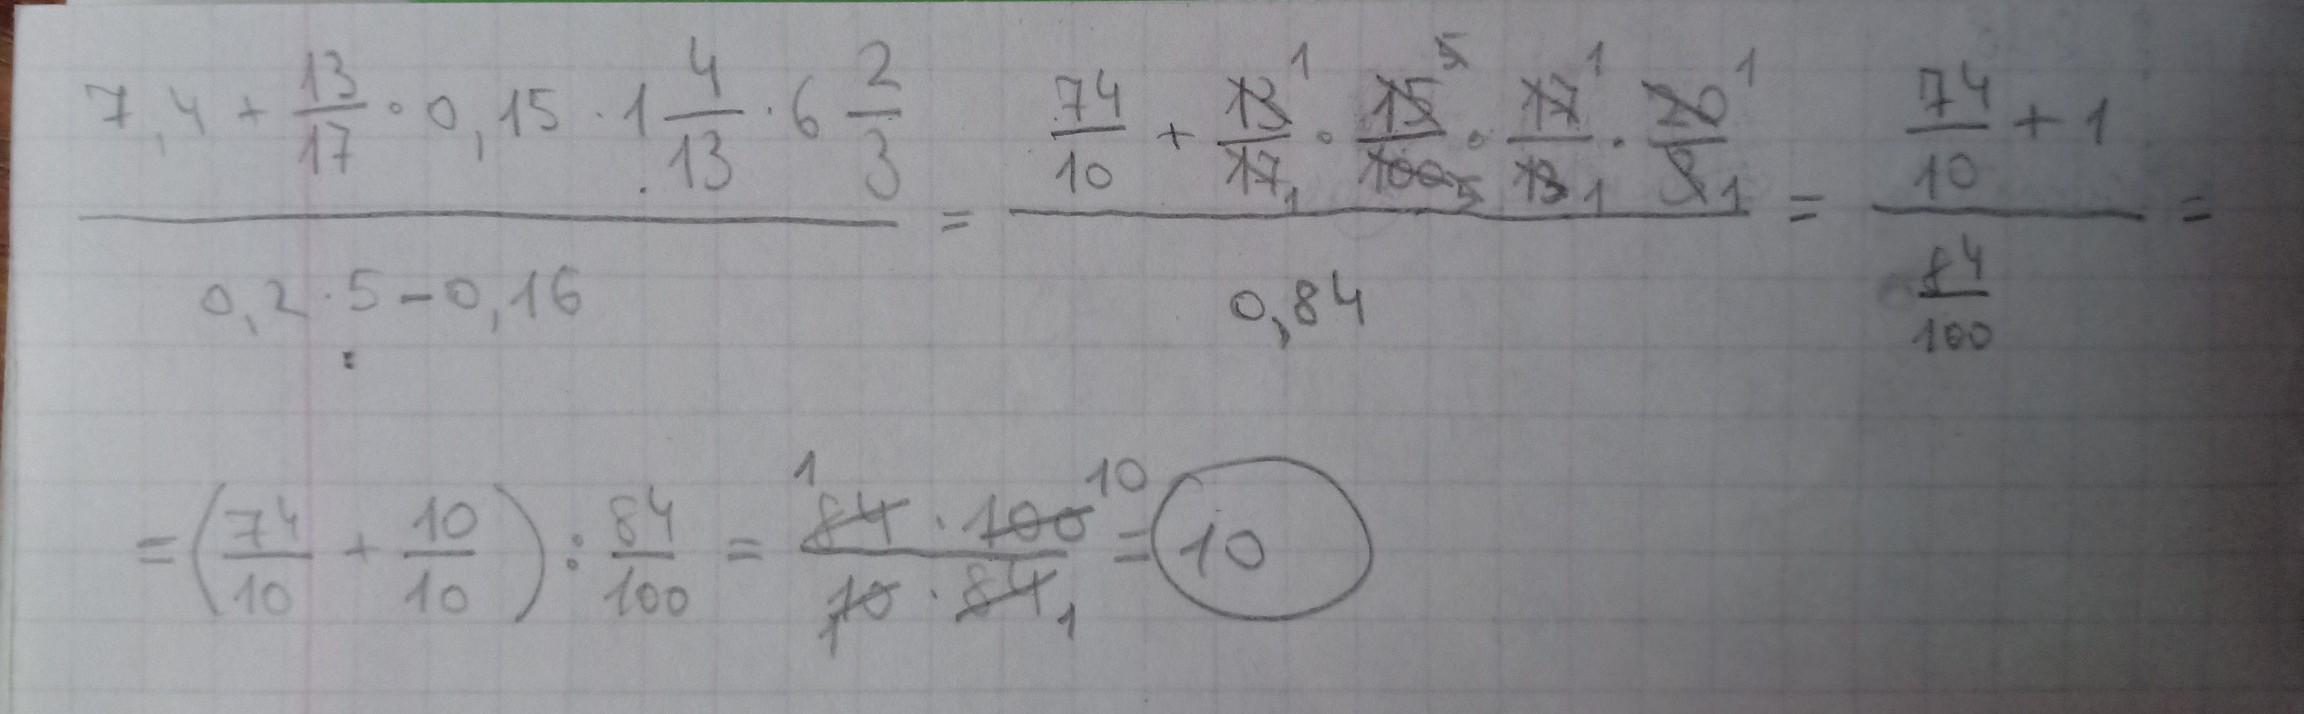 7,4 + 13/17 · 0,15 · 1 4/13 · 6 2/3 / 0,2 · 5 - 0,16 = 74/10 + 13 1/17 1 · 15 5/100 5 · 17 1/13 1 · 20 1/3 1 / 0,84 = 74/10 + 1 / 84/100 =
= (74/10 + 10/10) : 84/100 = 1 84 · 100 10 / 10 1 · 84 1 = 10